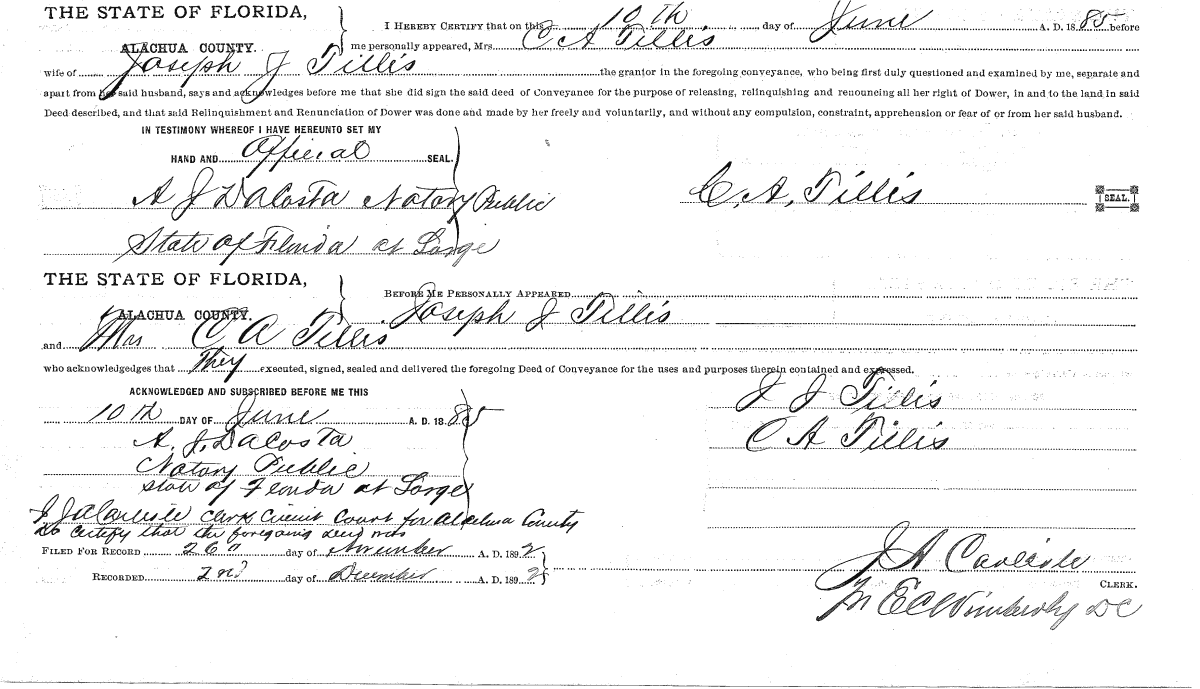 THE STATE OF FLORIDA,
ALACHUA COUNTY.
I HEREBY CERTIFY that on this 10th day of June A. D. 1885 before
me personally appeared, Mrs. C A Tillis
wife of Joseph J Tillis the grantor in the foregoing conveyance, who being first duly questioned and examined by me, separate and
apart from her said husband, says and acknowledges before me that she did sign the said deed of Conveyance for the purpose of releasing, relinquishing and renouncing all her right of Dower, in and to the land in said
Deed described, and that said Relinquishment and Renunciation of Dower was done and made by her freely and voluntarily, and without any compulsion, constraint, apprehension or fear of or from her said husband.
IN TESTIMONY WHEREOF I HAVE HEREUNTO SET MY
HAND AND Official SEAL.
A J DaCosta Notary Public
State of Florida at Large
C. A. Tillis
SEAL.
THE STATE OF FLORIDA,
ALACHUA COUNTY.
BEFORE ME PERSONALLY APPEARED
Joseph J Tillis
and Mrs C A Tillis
who acknowledgedges that They executed, signed, sealed and delivered the foregoing Deed of Conveyance for the uses and purposes therein contained and expressed.
ACKNOWLEDGED AND SUBSCRIBED BEFORE ME THIS
10th DAY OF June A. D. 1885
A. J. DaCosta
Notary Public
State of Florida at Large
J J Tillis
C A Tillis
I J A Carlisle Clerk Circuit Court for Alachua County
do certify that the foregoing deed was
FILED FOR RECORD 26" day of November A. D. 1892
RECORDED 2nd day of December A. D. 1892
J A Carlisle
CLERK.
E C Wimberly DC